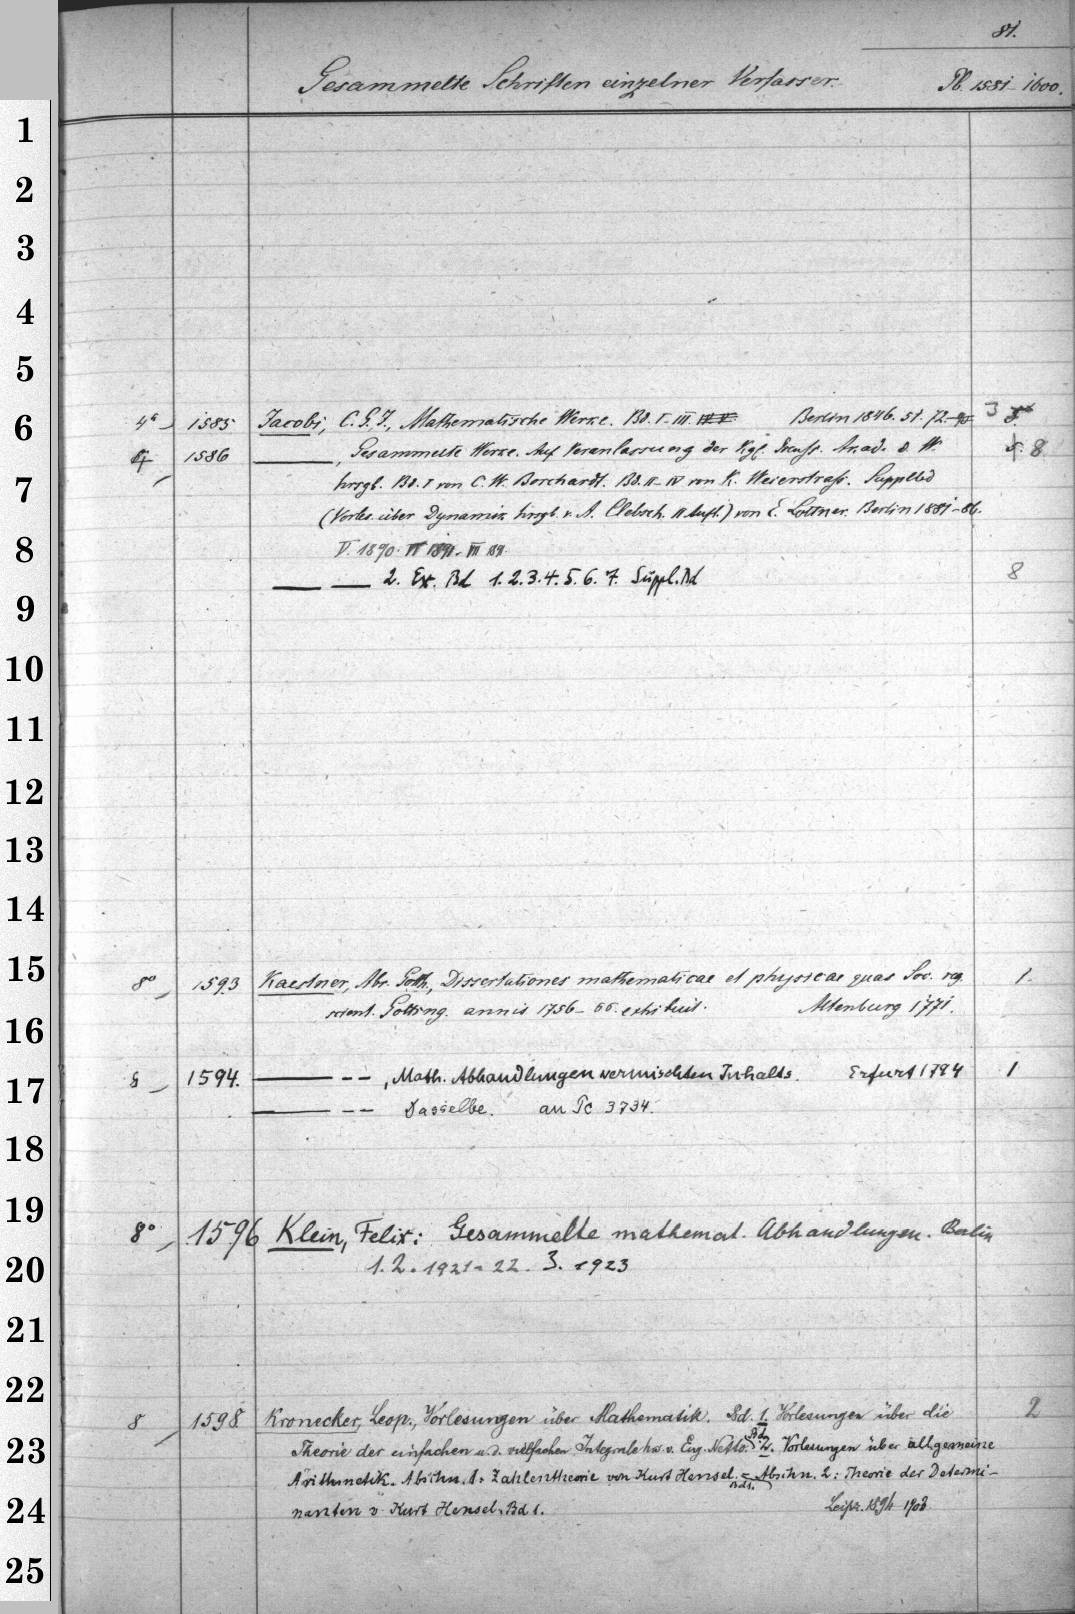 81.
Gesammelte Schriften einzelner Verfasser. Pb. 1581-1600.
1
2
3
4
5
6 4° 1585 Jacobi, C. G. J., Mathematische Werke. Bd. I-III Berlin 1846. 51. 72. 3
1586 , Gesammelte Werke. Auf Veranlassung der Kgl. Preuss. Akad. d. W. 8
7 hrsgb. Bd. I von C. W. Borchardt. Bd. II-IV von K. Weierstraß. Supplbd
(Vorles. über Dynamik hrsgb. v. A. Clebsch. II. Aufl.) von E. Lottner. Berlin 1881-86.
8 V. 1890. VI 1891. VII 1891.
2. Ex. Bd 1. 2. 3. 4. 5. 6. 7. Suppl. Bd 8
9
10
11
12
13
14
15 8° 1593 Kaestner, Abr. Goth., Dissertationes mathematicae et physicae quas Soc. reg. 1.
scient. Gotting. annis 1756-66. exhibuit. Altenburg 1771.
16
17 8 1594. — -- , Math. Abhandlungen vermischten Inhalts. Erfurt 1794 1
— -- Dasselbe. an Pc 3734.
18
19 8° 1596 Klein, Felix: Gesammelte mathemat. Abhandlungen. Berlin
20 1. 2. 1921-22. 3. 1923
21
22
8 1598 Kronecker, Leop., Vorlesungen über Mathematik. Bd. 1. Vorlesungen über die 2
23 Theorie der einfachen u. d. vielfachen Integrale hs. v. Eug. Netto. Bd 2. Vorlesungen über allgemeine
Arithmetik. Abschn. 1: Zahlentheorie von Kurt Hensel. Bd 1. = Abschn. 2: Theorie der Determi-
24 nanten v. Kurt Hensel. Bd 1. Leipz. 1894 1903
25